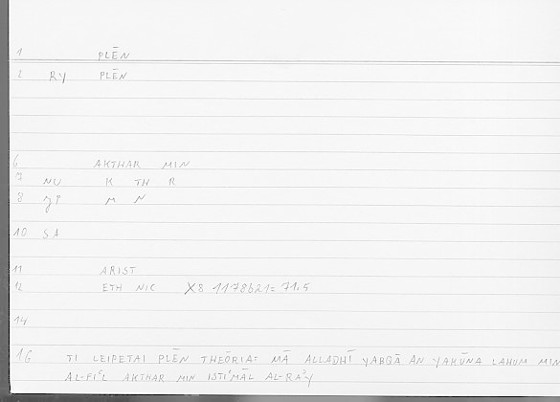 1 PLĒN
2 RY PLĒN
6 AKTHAR MIN
7 NU K TH R
8 M N
10 SA
11 ARIST
12 ETH NIC X8 1178b21= 71.5
14
16 TI LEIPETAI PLĒN THEŌRIA: MĀ ALLADHĪ YABQĀ AN YAKŪNA LAHUM MIN
AL-FIʿL AKTHAR MIN ISTIʿMĀL AL-RAʾY